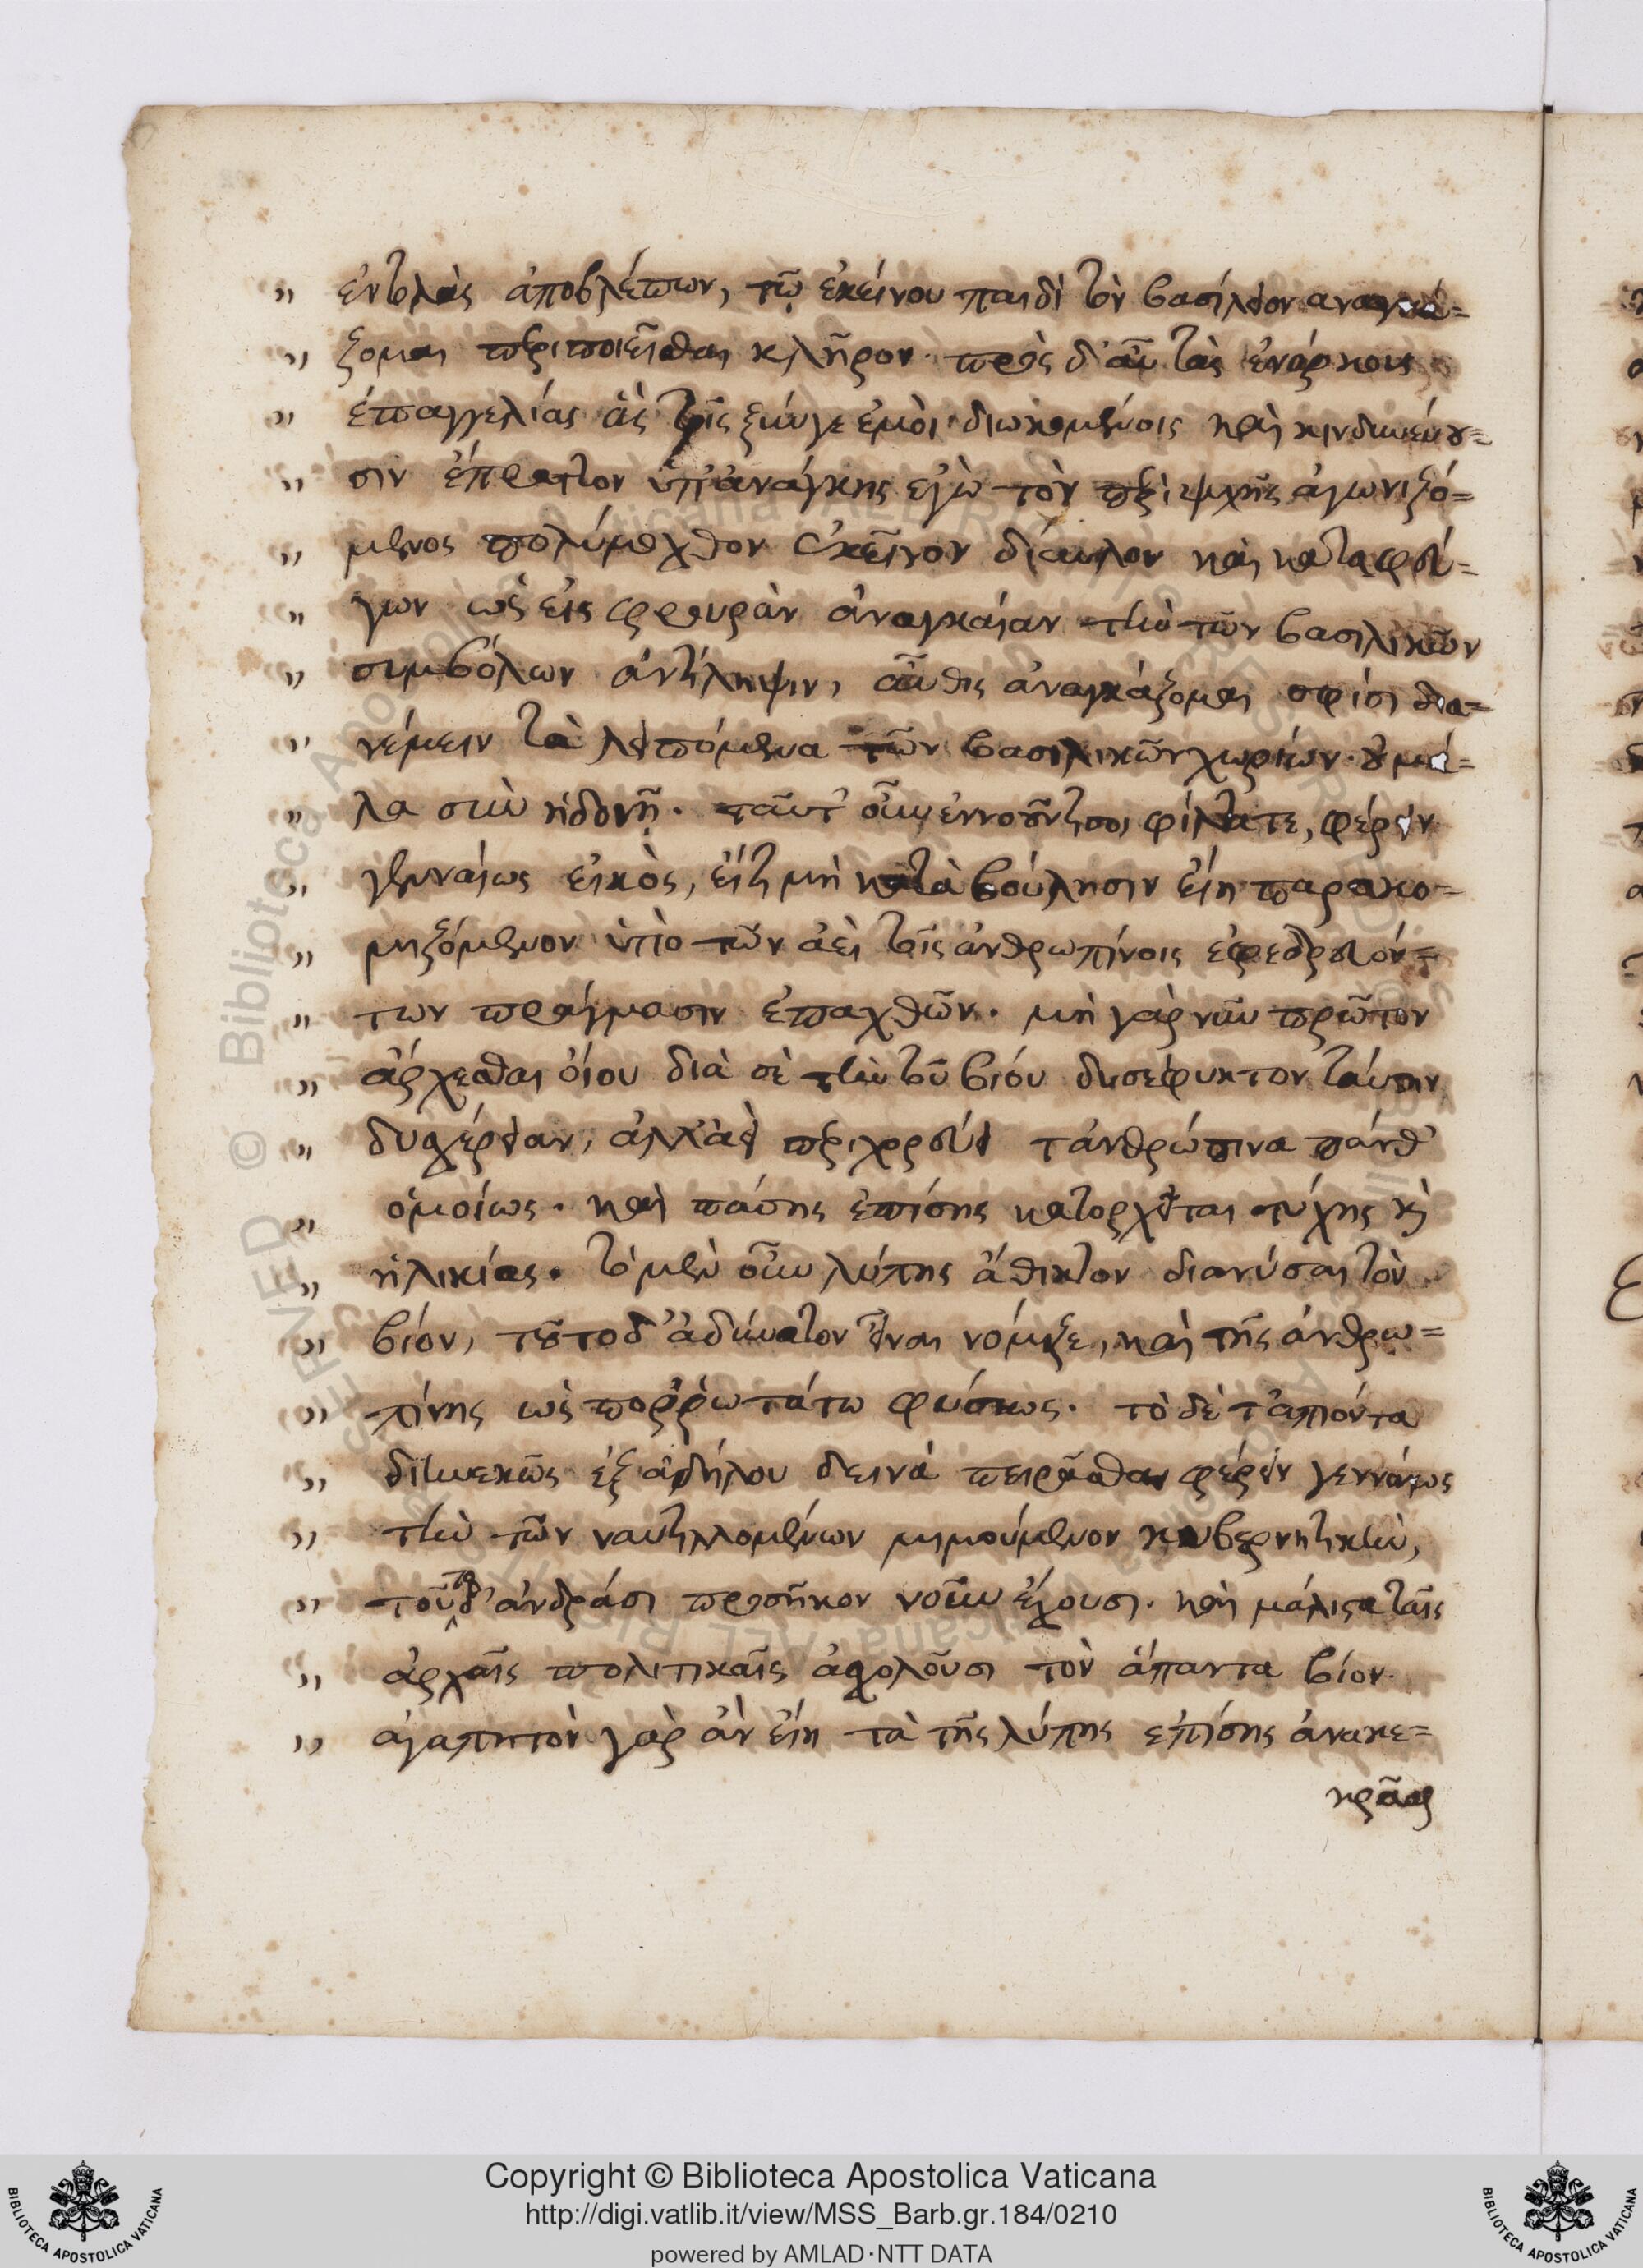 „ ἐντολὰς ἀποβλέπων, τῷ ἐκείνου παιδὶ τὸν βασίλειον αναγκά=
„ ζομαι περιποιεῖσθαι κλῆρον. πρὸς δ' αὖ τὰς ἐνόρκους
„ ἐπαγγελίας ἃς τοῖς ξύν γε ἐμοὶ διωκομένοις καὶ κινδυνεύου=
„ σιν ἐπραττον ὑπ' ἀνάγκης εγὼ τὸν περὶ ψυχῆς ἀγωνιζό=
„ μενος πολύμοχθον ἐκεῖνον δίαυλον καὶ καταφεύ=
„ γων ὡς εἰς φρουρὰν ἀναγκαίαν τὴν τῶν βασιλικῶν
„ συμβόλων ἀντίληψιν, αὖθις ἀναγκάζομαι σφίσι δια=
„ νέμειν τὰ λειπόμενα τῶν βασιλικῶν χωρίων. οὐ μά=
„ λα σὺν ἡδονῇ. ταῦτ' οὖν ἐννοοῦντί σοι φίλτατε, φέρειν
„ γενναίως εἰκὸς, εἴ τι μὴ κατὰ βούλησιν εἴη παρακο=
„ μιζόμενον ὑπὸ τῶν ἀεὶ τοῖς ἀνθρωπίνοις ἐφεδρευόν=
„ των πράγμασιν ἐπαχθῶν. μὴ γὰρ νῦν πρῶτον
„ ἄρχεσθαι οἴου διὰ σὲ τὴν τοῦ βιόυ δυσέφυκτον ταύτην
„ δυσχέρειαν, ἀλλ' ἀεὶ περιχορεύει τἀνθρώπινα πάνθ'
„ ὁμοίως. καὶ πάσης ἐπίσης κατορχεῖται τύχης καὶ
„ ἡλικίας. τὸ μὲν οὖν λύπης ἄθικτον διανύσαι τὸν
„ βίον, τοῦτο δ' ἀδύνατον εἶναι νόμιζε, καὶ τῆς ἀνθρω=
„ πίνης ὡς πορρωτάτω φύσεως. τὸ δὲ τ' ἀπιόντα
„ διηνεκῶς ἐξ ἀδήλου δεινά πειρᾶσθαι φέρειν γεννάιως
„ τὴν τῶν ναυτιλλομένων μιμούμενον κυβερνητικὴν,
„ τοῦτο δ' ἀνδράσι προσῆκον νοῦν ἔχουσι. καὶ μάλιστα ταῖς
„ ἀρχαῖς πολιτικαῖς ἀσχολοῦσι τὸν ἅπαντα βίον.
„ ἀγαπητὸν γὰρ ἀν εἴη τὰ τῆς λύπης επίσης ἀνακε=
κρᾶσθαι
Copyright © Biblioteca Apostolica Vaticana
http://digi.vatlib.it/view/MSS_Barb.gr.184/0210
powered by AMLAD·NTT DATA
BIBLIOTECA APOSTOLICA VATICANA
BIBLIOTECA APOSTOLICA VATICANA